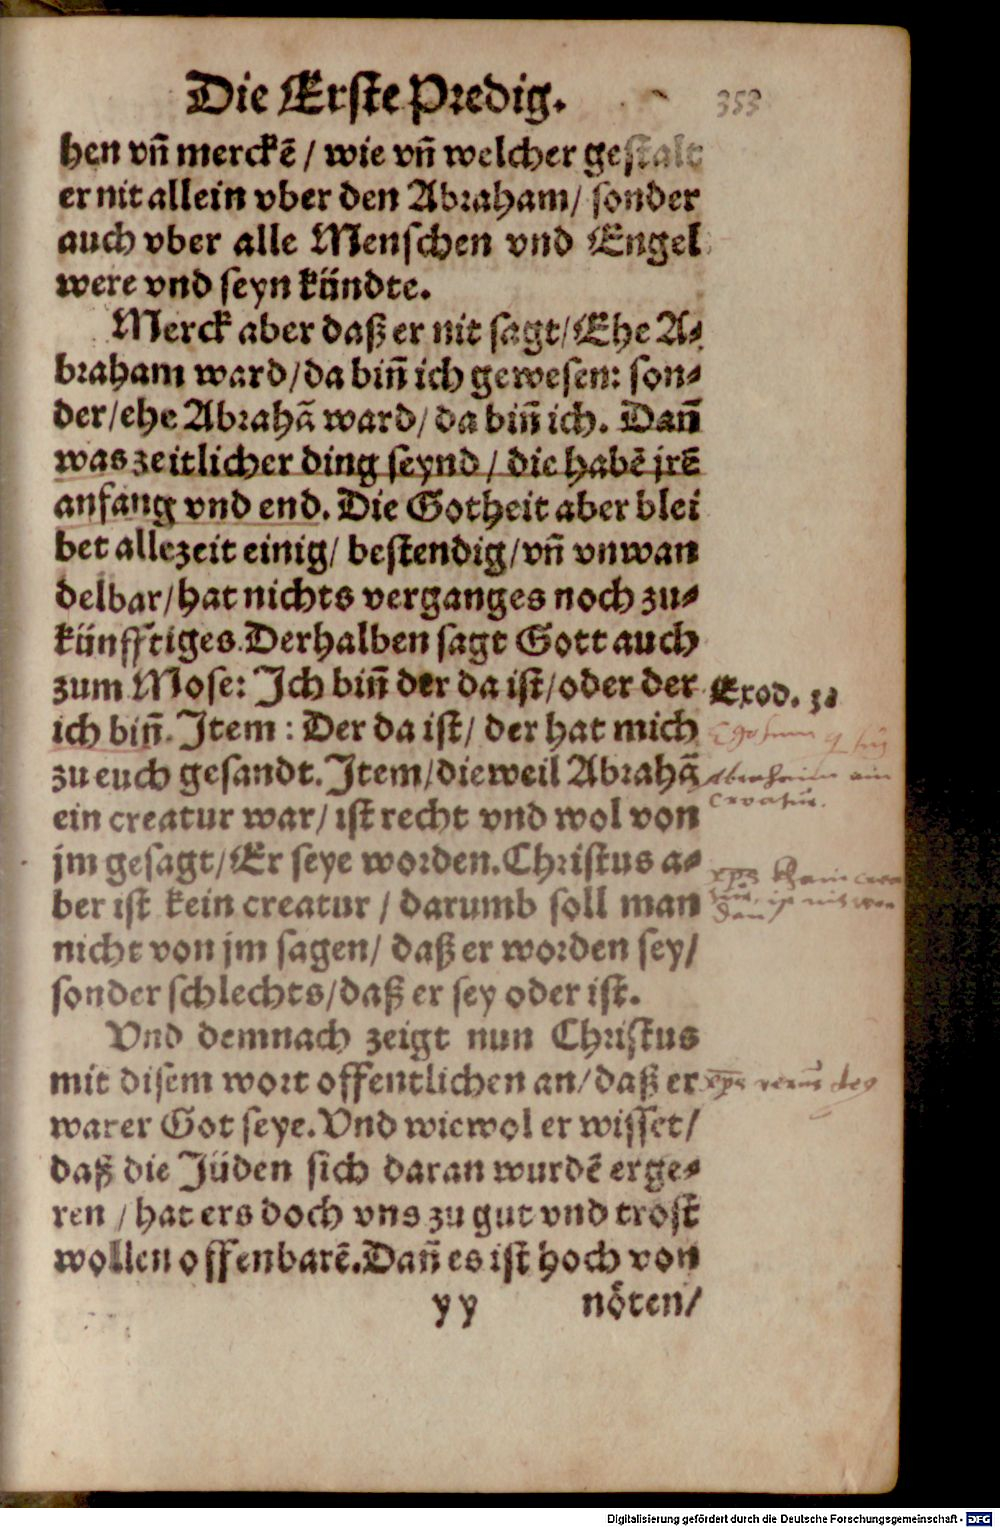 Die Erste Predig.
353
hen vñ merckẽ / wie vñ welcher gestalt
er nit allein vber den Abraham / sonder
auch vber alle Menschen vnd Engel
were vnd seyn kündte.
Merck aber daß er nit sagt / Ehe A-
braham ward / da biñ ich gewesen: son-
der / ehe Abrahã ward / da biñ ich. Dañ
was zeitlicher ding seynd / die habẽ jrẽ
anfang vnd end. Die Gotheit aber blei
bet allezeit einig / bestendig / vñ vnwan
delbar / hat nichts verganges noch zu-
künfftiges. Derhalben sagt Gott auch
zum Mose: Ich biñ der da ist / oder der
Exod. 3.
ich biñ. Item : Der da ist / der hat mich
Ego sum q sũ
zu euch gesandt. Item / dieweil Abrahã
Abraham ain
creatur.
ein creatur war / ist recht vnd wol von
jm gesagt / Er seye worden. Christus a-
xps khain crea
ber ist kein creatur / darumb soll man
nicht von jm sagen / daß er worden sey /
sonder schlechts / daß er sey oder ist.
Vnd demnach zeigt nun Christus
mit disem wort offentlichen an / daß er
xps verus deus
warer Got seye. Vnd wiewol er wisset /
daß die Jüden sich daran wurdẽ erge-
ren / hat ers doch vns zu gut vnd trost
wollen offenbarẽ. Dañ es ist hoch von
yy nöten /
Digitalisierung gefördert durch die Deutsche Forschungsgemeinschaft - DFG